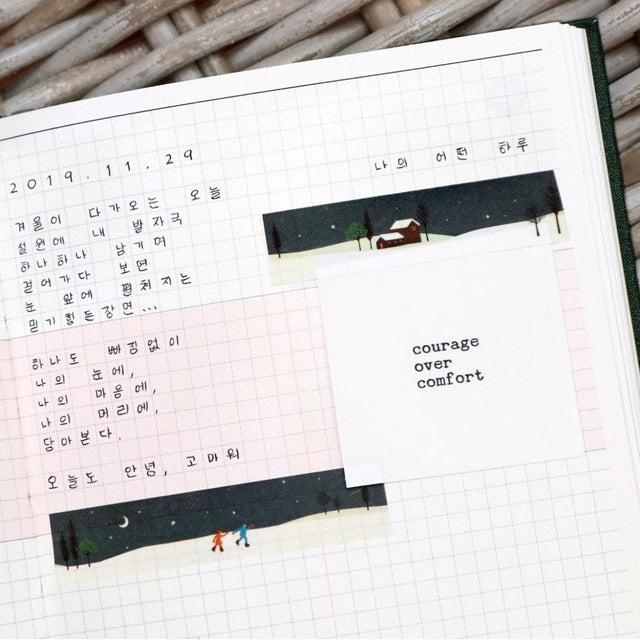 2019.11.29
나의 어떤 하루
겨울이 다가오는 오늘
설원에 내 발자국
하나하나 남기며
걸어가다 보면
눈 앞에 펼쳐지는
믿기힘든장면...
하나도 빠짐없이
나의 눈에,
나의 마음에,
나의 머리에,
담아본다.
오늘도 안녕, 고마워
courage
over
comfort